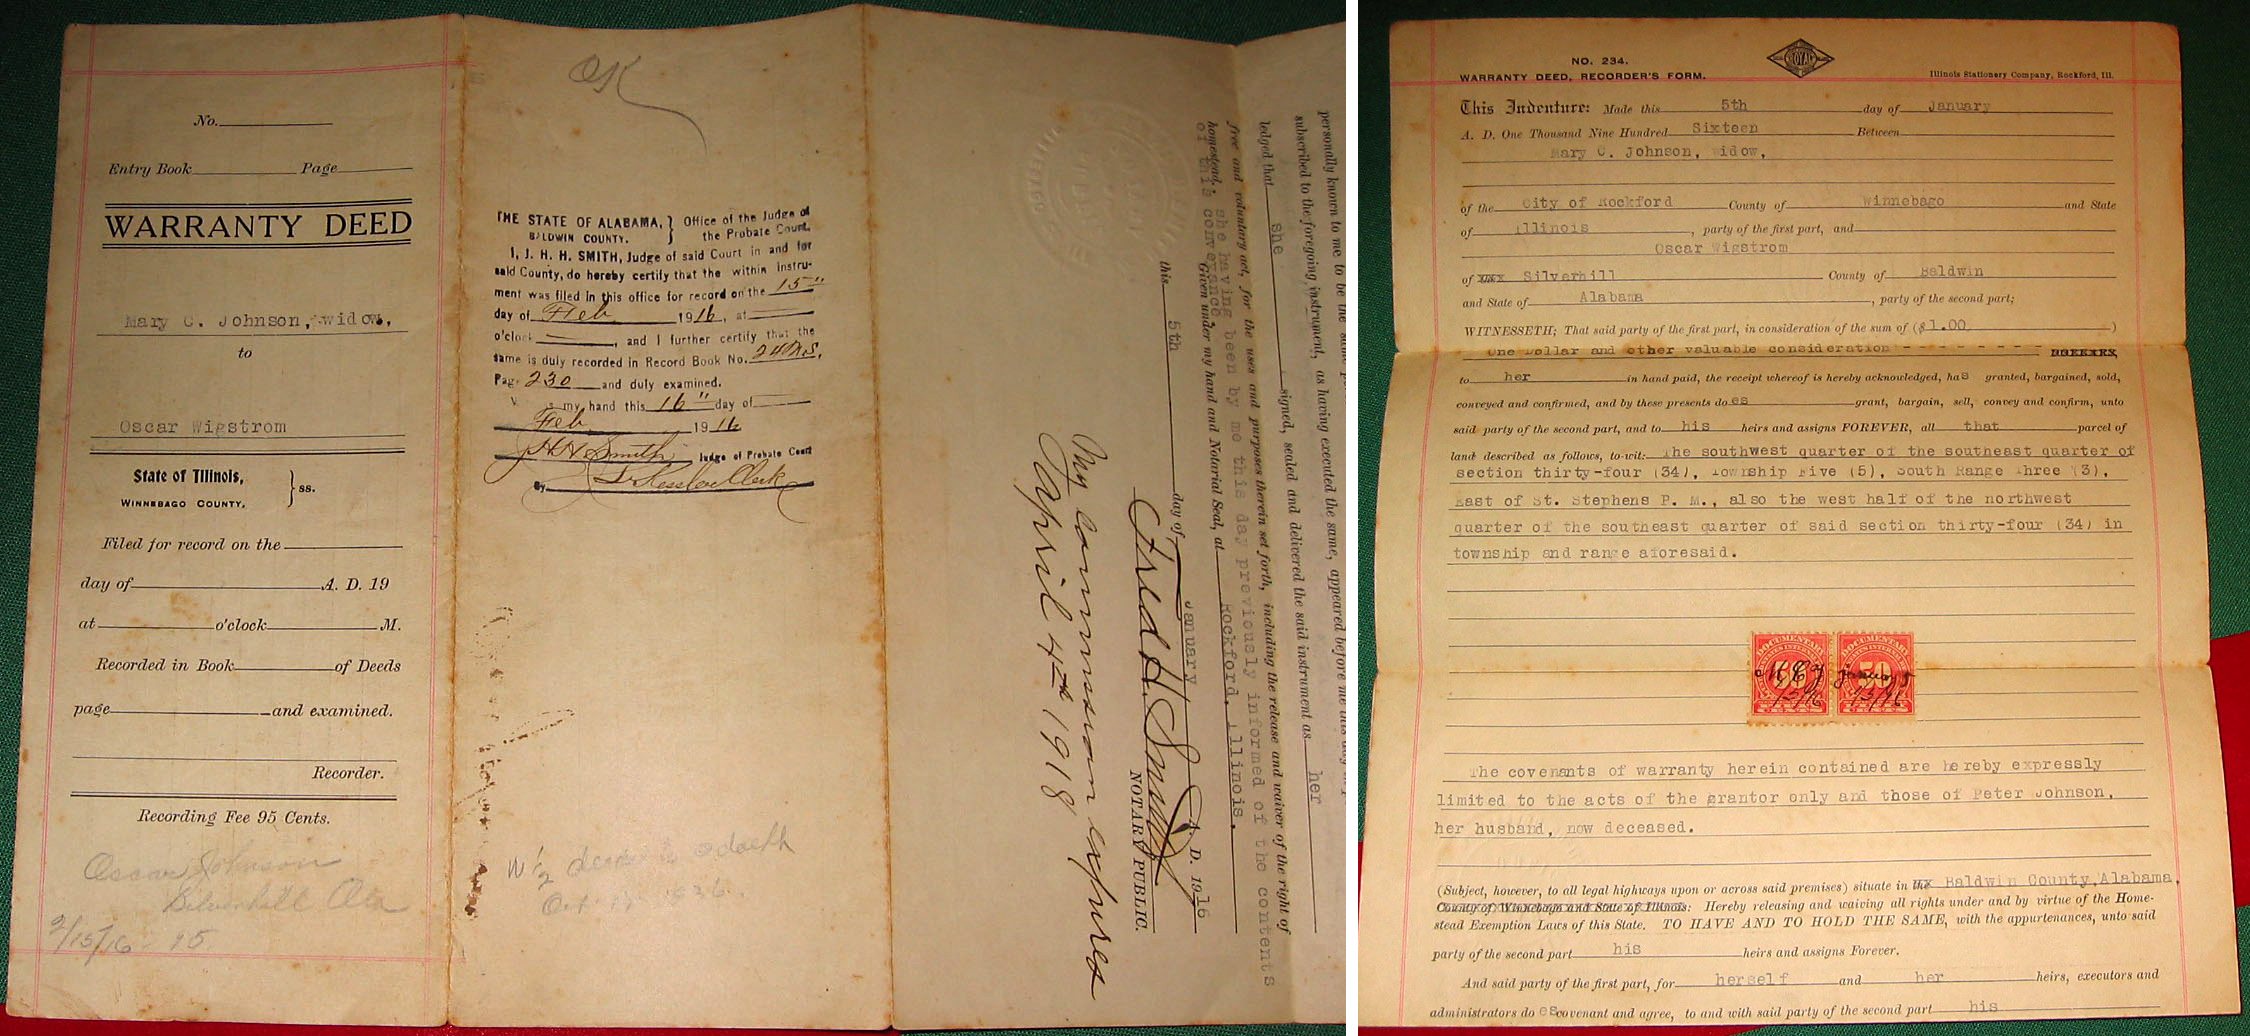 No.
Entry Book Page
WARRANTY DEED
Mary C. Johnson, widow,
to
Oscar Wigstrom
State of Illinois,
WINNEBAGO COUNTY,
} ss.
Filed for record on the
day of A. D. 19
at o'clock M.
Recorded in Book of Deeds
page and examined.
Recorder.
Recording Fee 95 Cents.
Oscar Johnson
Silverhill Ala
2/15/16 - 95
OK
THE STATE OF ALABAMA, } Office of the Judge of
BALDWIN COUNTY. the Probate Court.
I, J. H. H. SMITH, Judge of said Court in and for
said County, do hereby certify that the within instru-
ment was filed in this office for record on the 15"
day of Feb 1916, at
o'clock , and I further certify that the
same is duly recorded in Record Book No. 24
Page 230 and duly examined.
my hand this 16" day of
Feb 1916
J H H Smith Judge of Probate Court
By Clerk
W 1/2
Oct 1936.
personally known to me to be the same
subscribed to the foregoing instrument, as having executed the same, appeared before me this day
ledged that she signed, sealed and delivered the said instrument as her
free and voluntary act, for the uses and purposes therein set forth, including the release and waiver of the right of
homestead, she having been by me this day previously informed of the contents
of this conveyance.
Given under my hand and Notarial Seal, at Rockford, Illinois,
this 5th day of January A. D. 1916
Fred H. Smith
NOTARY PUBLIC.
My commission expires
April 4th 1918
NO. 234.
WARRANTY DEED, RECORDER'S FORM.
ROYAL
Illinois Stationery Company, Rockford, Ill.
This Indenture: Made this 5th day of January
A. D. One Thousand Nine Hundred Sixteen Between
Mary C. Johnson, widow,
of the City of Rockford County of Winnebago and State
of Illinois , party of the first part, and
Oscar Wigstrom
of xxx Silverhill County of Baldwin
and State of Alabama , party of the second part;
WITNESSETH; That said party of the first part, in consideration of the sum of ($1.00 )
One Dollar and other valuable consideration - - - - - - - - DOLLARS,
to her in hand paid, the receipt whereof is hereby acknowledged, has granted, bargained, sold,
conveyed and confirmed, and by these presents does grant, bargain, sell, convey and confirm, unto
said party of the second part, and to his heirs and assigns FOREVER, all that parcel of
land described as follows, to-wit: The southwest quarter of the southeast quarter of
section thirty-four (34), Township Five (5), South Range Three (3),
East of St. Stephens P. M., also the west half of the northwest
quarter of the southeast quarter of said section thirty-four (34) in
township and range aforesaid.
DOCUMENTARY DOCUMENTARY
50 50
M C J January 5
1/5/16 1/5/16
The covenants of warranty herein contained are hereby expressly
limited to the acts of the grantor only and those of Peter Johnson,
her husband, now deceased.
(Subject, however, to all legal highways upon or across said premises) situate in the Baldwin County, Alabama,
County of Winnebago and State of Illinois: Hereby releasing and waiving all rights under and by virtue of the Home-
stead Exemption Laws of this State. TO HAVE AND TO HOLD THE SAME, with the appurtenances, unto said
party of the second part his heirs and assigns Forever.
And said party of the first part, for herself and her heirs, executors and
administrators do es covenant and agree, to and with said party of the second part his